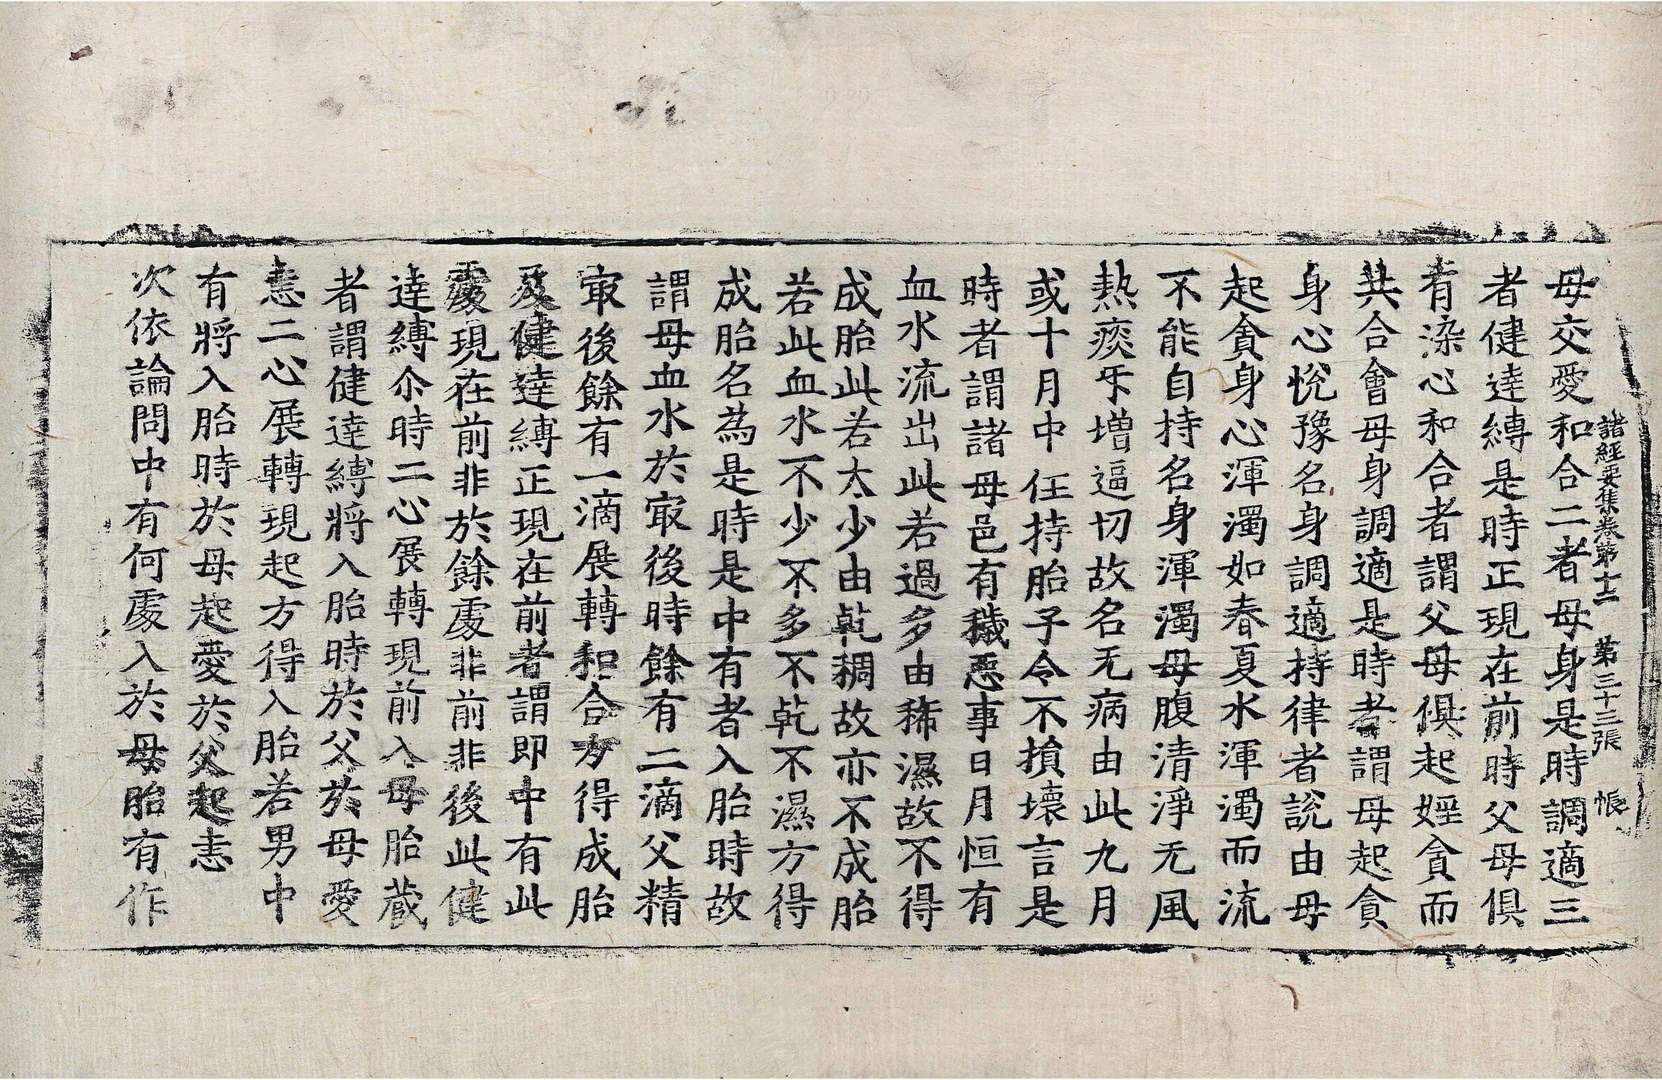 諸經要集卷第十二　第三十三張　帳
母交愛和合二者母身是時調適三
者健達縛是時正現在前時父母俱
有染心和合者謂父母俱起婬貪而
共合會母身調適是時者謂母起貪
身心悅豫名身調適持律者說由母
起貪身心渾濁如春夏水渾濁而流
不能自持名身渾濁母腹清淨无風
熱痰㸦增逼切故名无病由此九月
或十月中任持胎子令不損壞言是
時者謂諸母邑有穢惡事日月恒有
血水流出此若過多由稀濕故不得
成胎此若太少由乾稠故亦不成胎
若此血水不少不多不乾不濕方得
成胎名為是時是中有者入胎時故
謂母血水於㝡後時餘有二滴父精
㝡後餘有一滴展轉和合方得成胎
及健達縛正現在前者謂即中有此
處現在前非於餘處非前非後此健
達縛尒時二心展轉現前入母胎藏
者謂健達縛將入胎時於父於母愛
恚二心展轉現起方得入胎若男中
有將入胎時於母起愛於父起恚
次依論問中有何處入於母胎有作